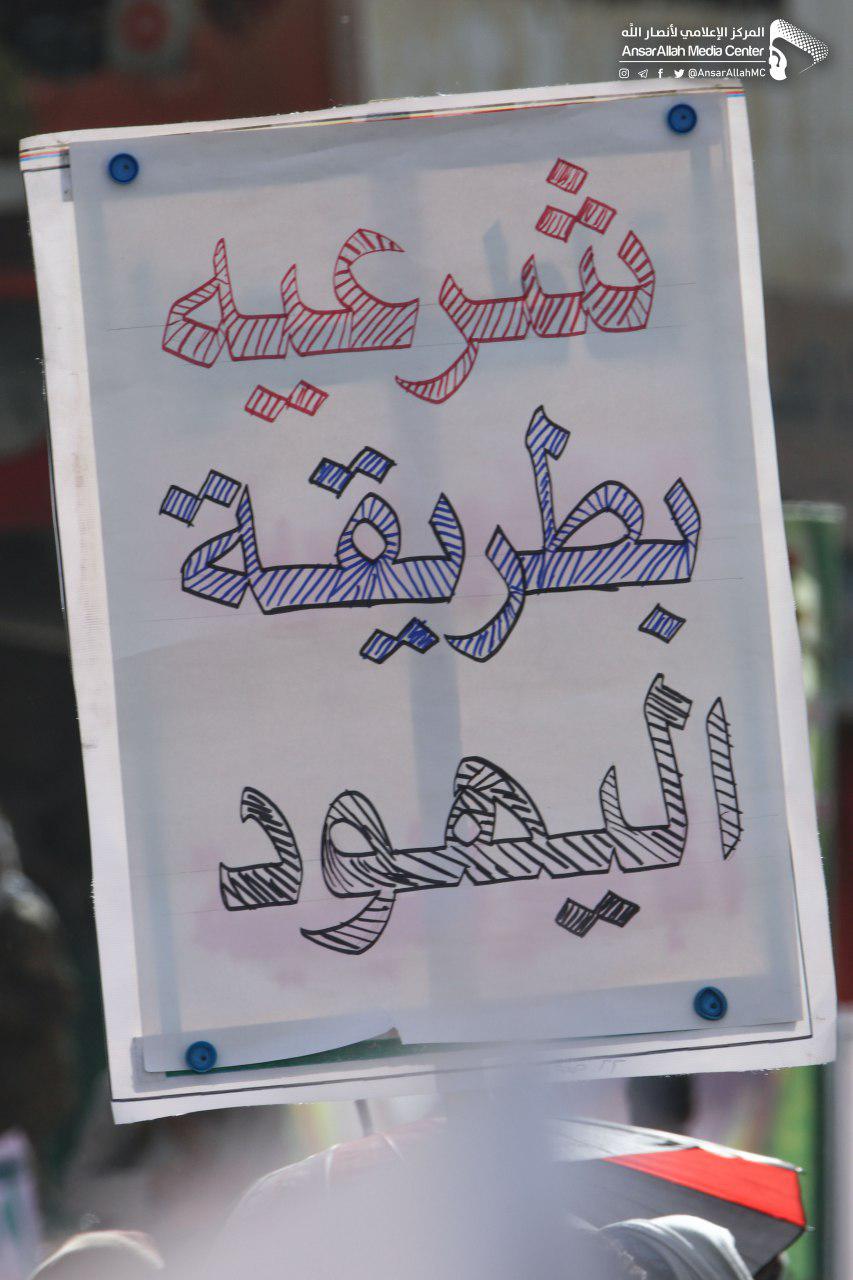 المركز الإعلامي لأنصار الله
AnsarAllah Media Center
@AnsarAllahMC
شرعيه
بطريقة
اليهود